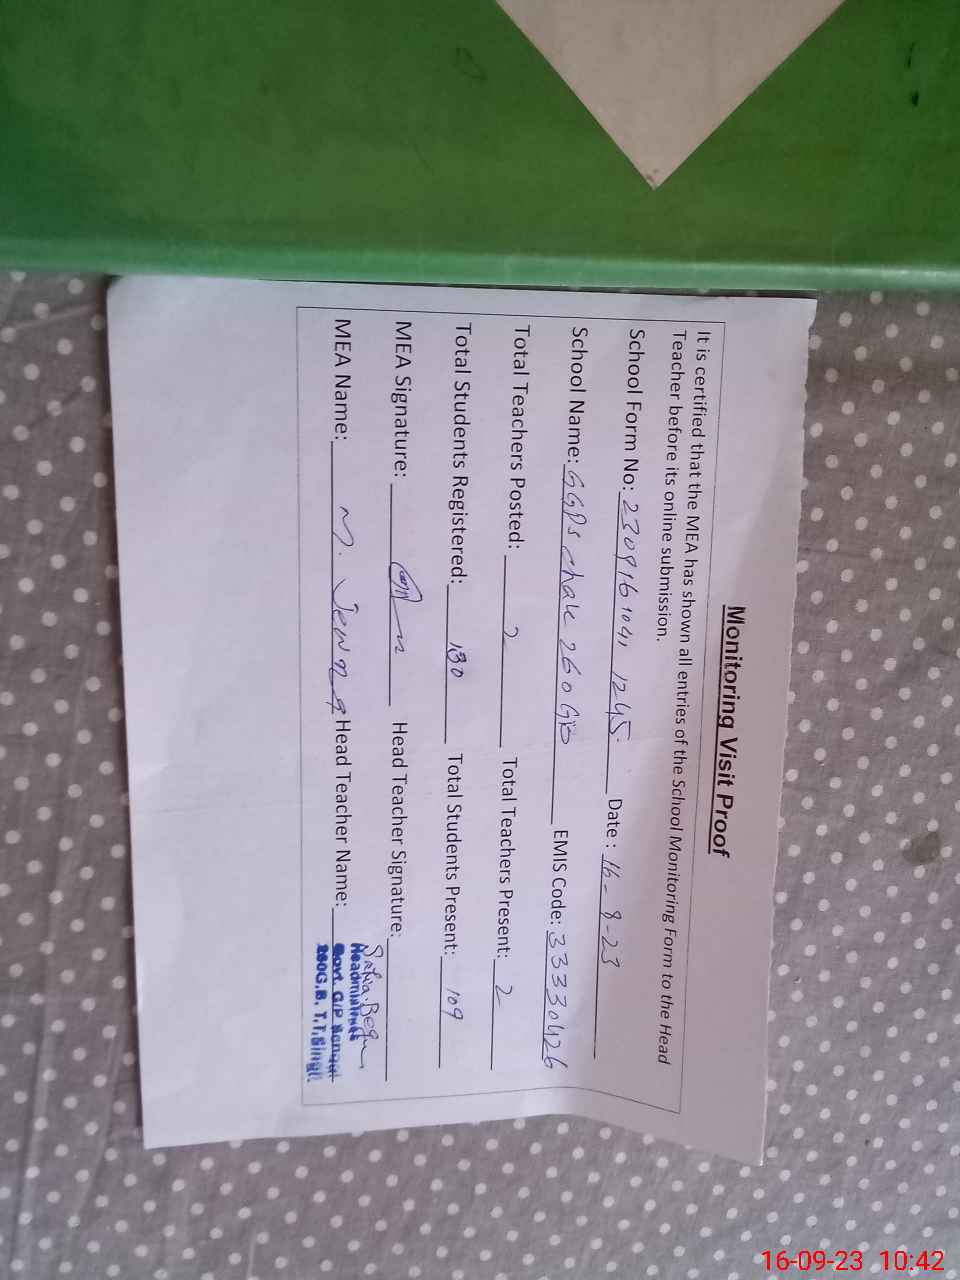 Monitoring Visit Proof
It is certified that the MEA has shown all entries of the School Monitoring Form to the Head
Teacher before its online submission.
School Form No: 230916 1041 1245. Date : 16-9-23
School Name: GGPS chak 260 GB EMIS Code: 33330426
Total Teachers Posted: 2 Total Teachers Present: 2
Total Students Registered: 130 Total Students Present: 109
MEA Signature: Head Teacher Signature:
MEA Name: M. Head Teacher Name:
Headmistress
Govt. G/P School
260G.B. T.T.Singh.
16-09-23 10:42